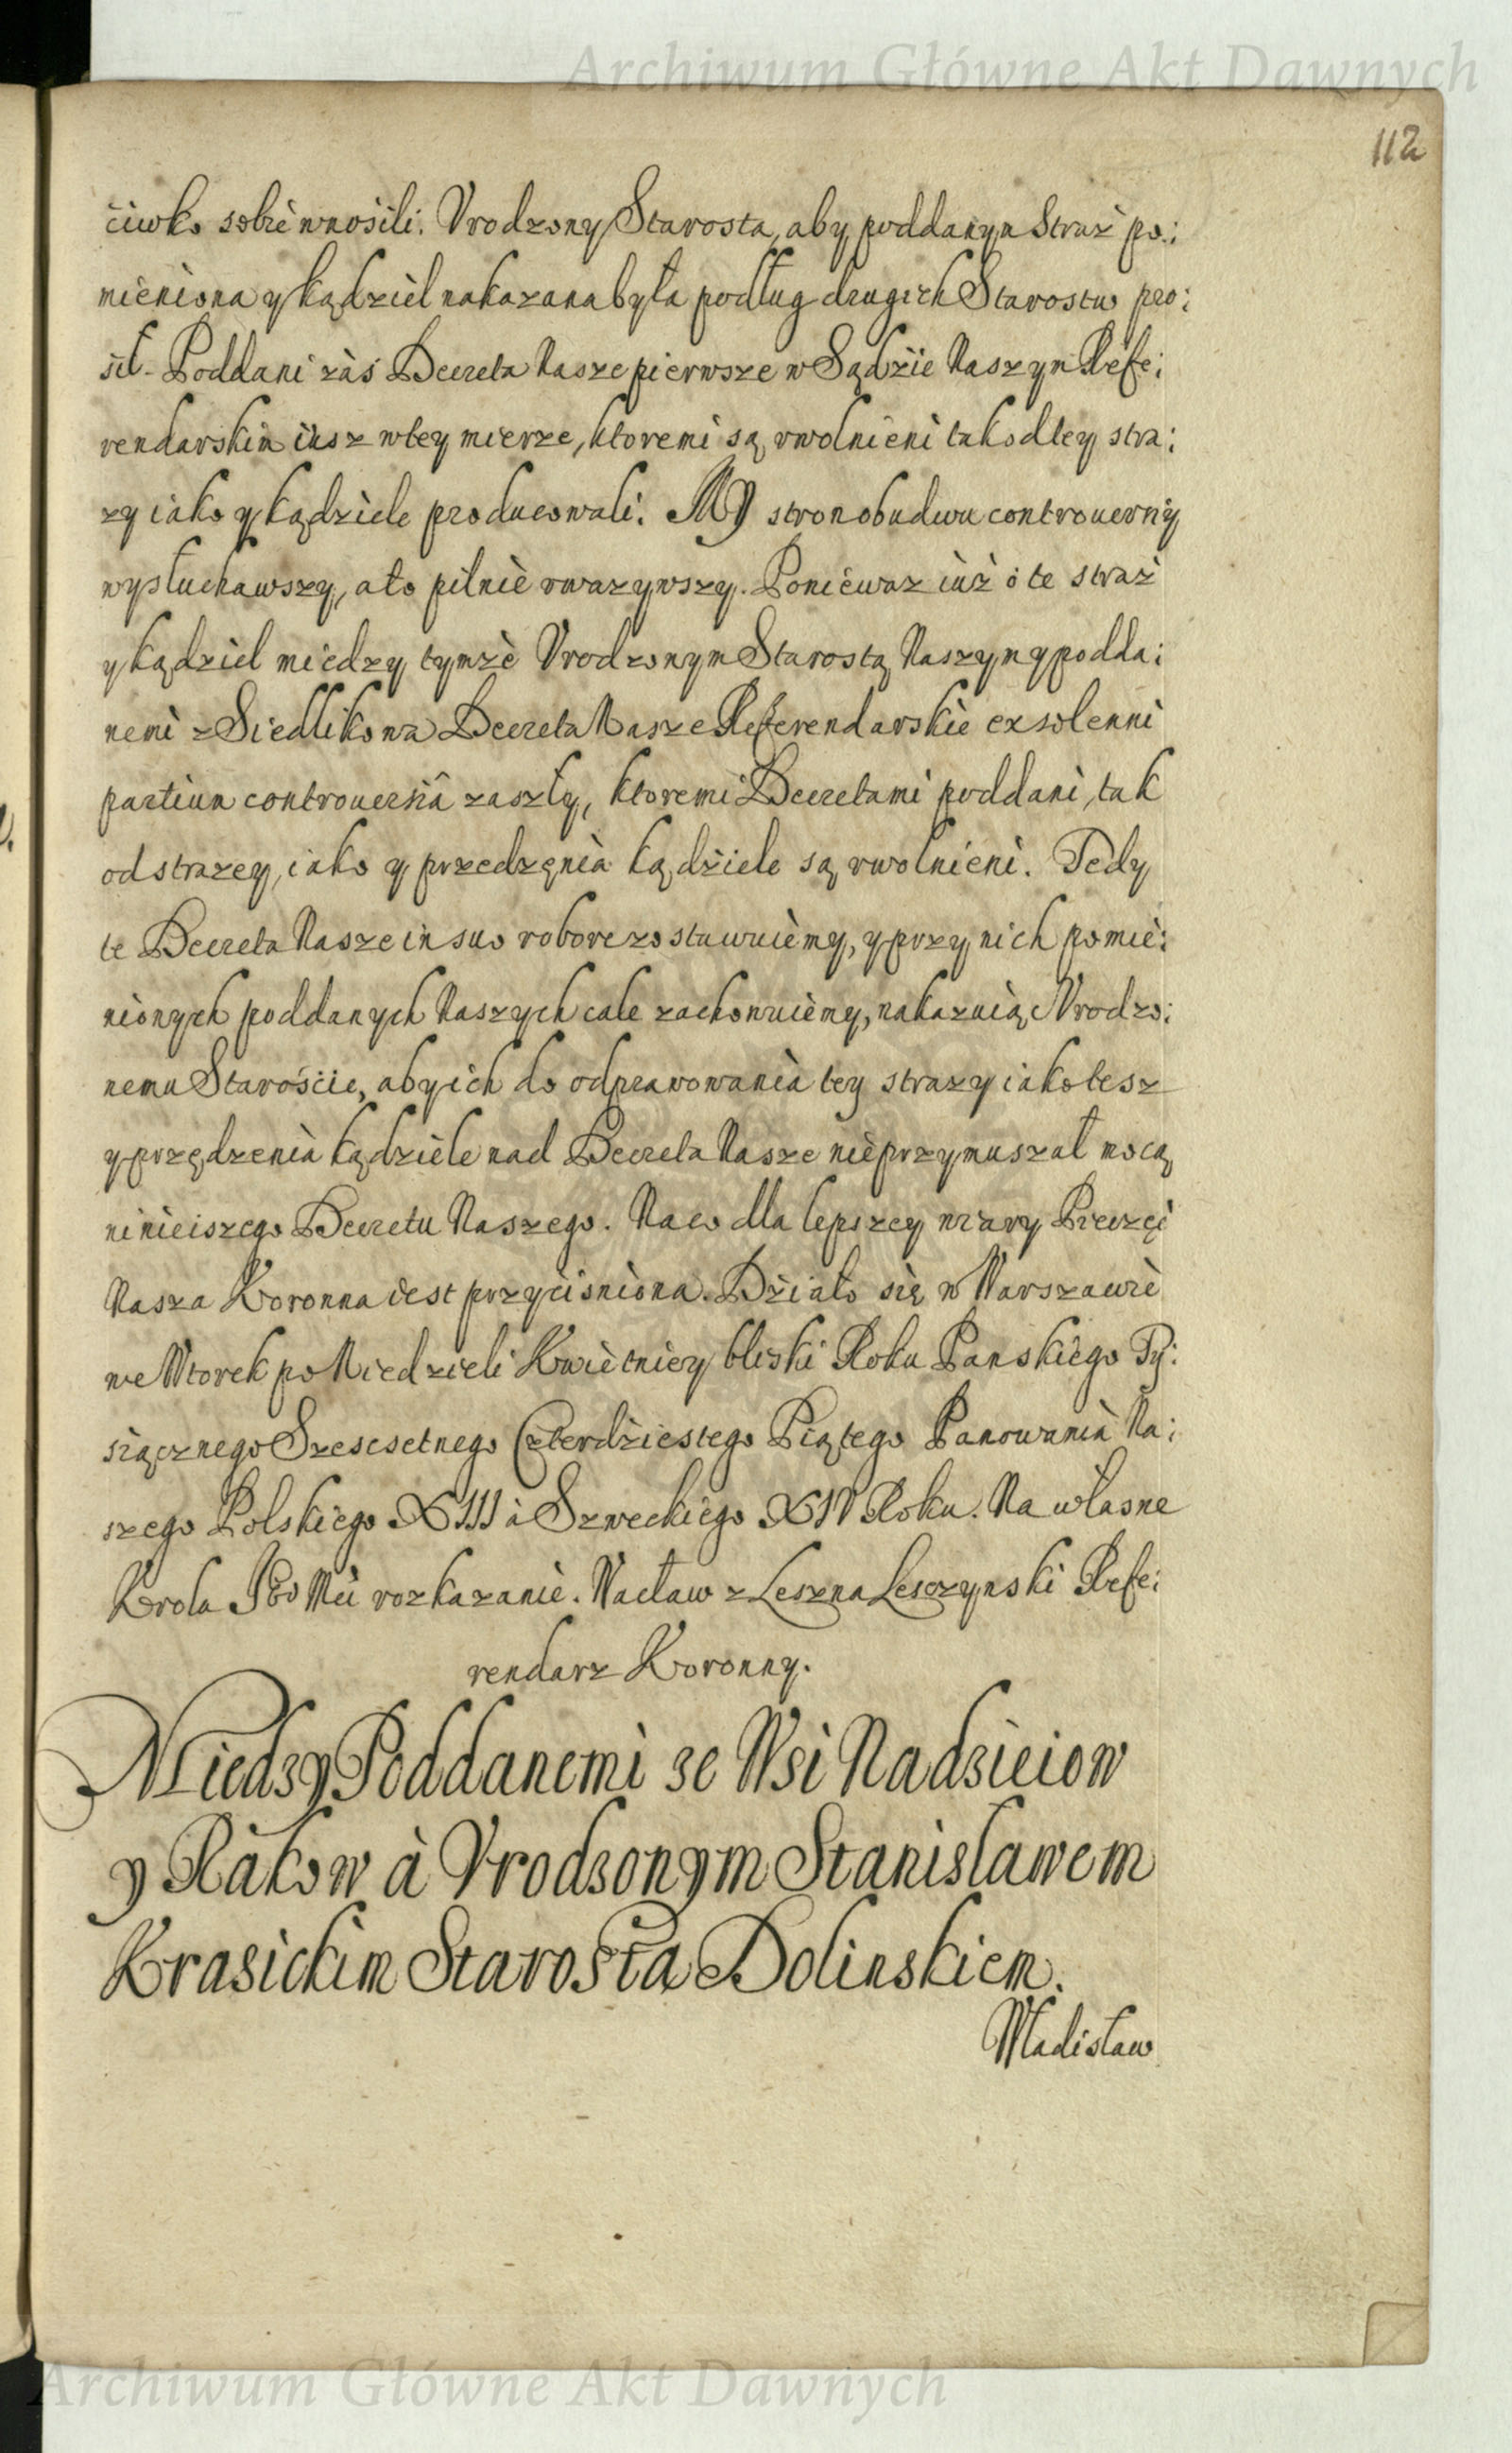 Archiwum Główne Akt Dawnych
112
ciwko sobie wnosili. Vrodzony Starosta, aby poddanym Straż po:
mieniona y kądziel nakazana była podług drugich Starostw pro:
sił. Poddani zaś Decreta Nasze pierwsze w Sądzie Naszym Refe:
rendarskim iusz w tey mierze, ktoremi są vwolnieni tak od tey stra:
zy iako y kądziele producowali. MY stron obudwu controuersiy
wysłuchawszy, a to pilnie vwazywszy. Poniewaz iuż o te straż
y kądziel miedzy tymże Vrodzonym Starostą Naszym y podda:
nemi z Siedlikowa Decreta Nasze Referendarskie ex solenni
partium controuersiâ zaszły, ktoremi Decretami poddani, tak
od strazey, iako y przedzęnia kądziele są vwolnieni. Tedy
te Decreta Nasze in suo robore zostawuiemy, y przy nich pomie:
nionych poddanych Naszych cale zachowuiemy, nakazuiąc Vrodzo:
nemu Staroście, aby ich do odprawowania tey strazy iako tesz
y przędzenia kądziele nad Decreta Nasze nie przymuszał mocą
ninieiszego Decretu Naszego. Na co dla lepszey wiary Pieczęć
Nasza Koronna iest przycisniona. Działo się w Warszawie
we Wtorek po Niedzieli Kwietniey bliski Roku Panskiego Ty:
siącznego Szescsetnego Czterdziestego Piątego Panowania Na:
szego Polskiego XIII à Szweckiego XIV Roku. Na własne
Krola Jeo Mci rozkazanie. Wacław z Leszna Lesczynski Refe:
rendarz Koronny.
Miedzy Poddanemi ze Wsi Nadzieiow
y Rakow à Vrodzonym Stanisławem
Krasickim Starosta Dolinskiem.
Władisław
Archiwum Główne Akt Dawnych